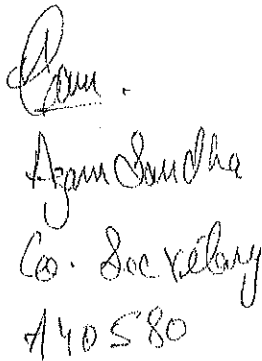 Azam Sandha
Co. Secretary
A40580